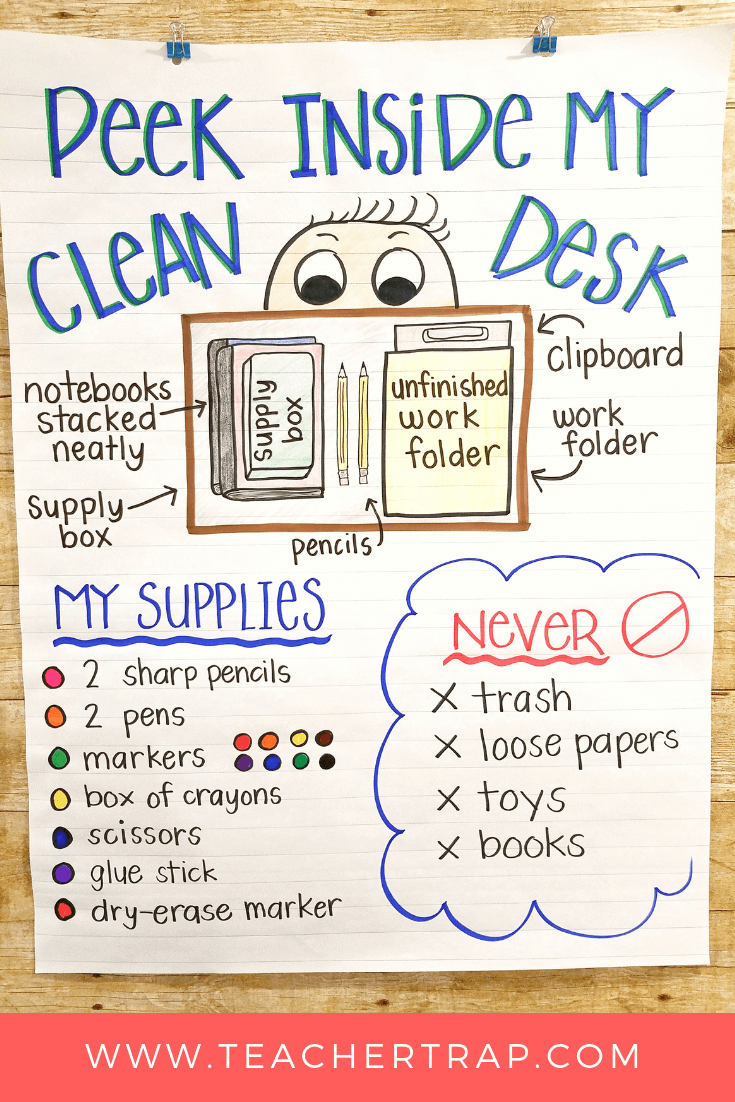 Peek Inside My
Clean Desk
notebooks
stacked
neatly
supply
box
supply
box
pencils
unfinished
work
folder
clipboard
work
folder
My Supplies
2 sharp pencils
2 pens
markers
box of crayons
scissors
glue stick
dry-erase marker
Never
X trash
X loose papers
X toys
X books
WWW.TEACHERTRAP.COM